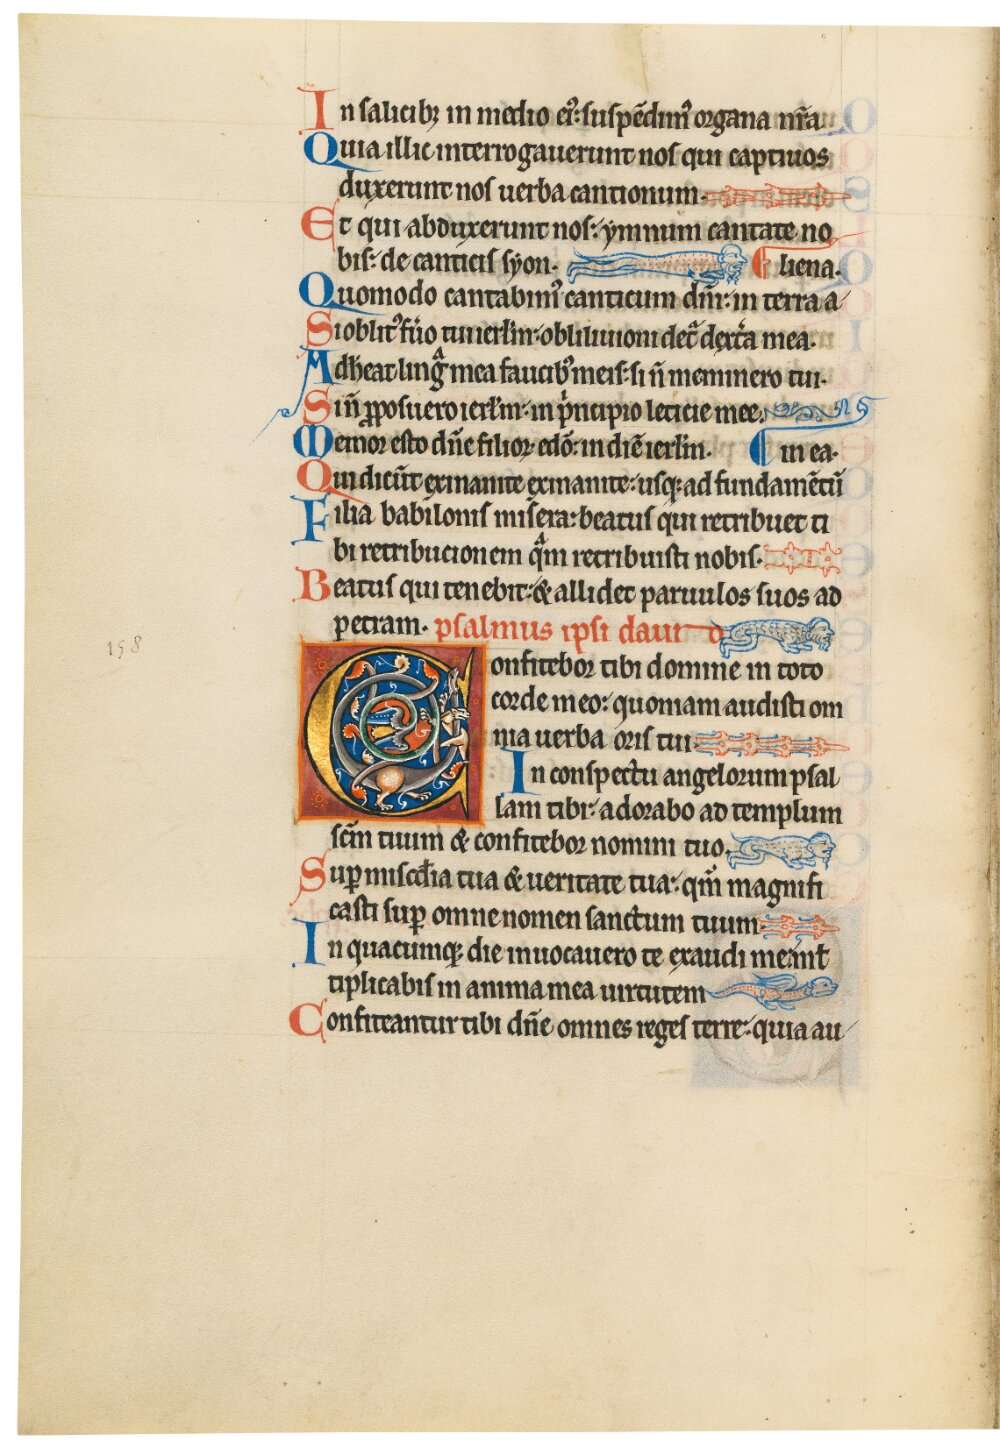 In salicib; in medio eiꝰ: suspēdimꝰ organa nr̄a.
Quia illic interrogauerunt nos qui captiuos
duxerunt nos uerba cantionum.
Et qui abduxerunt nos: ymnum cantate no
bis: de canticis syon. liena.
Quomodo cantabimꝰ canticum dn̄i: in terra a
Si oblitꝰ fūo tui ierl'm: obliuioni det᷑ dext᷑a mea.
Adheat lingᷓ mea faucibꝰ meis: si n̄ meminero tui.
Si n̄ ꝓposuero ierl'm: in pͥncipio leticie mee.
Memor esto dn̄e filioꝝ edō: in diē ierl'm. in ea.
Qui dicūt exinanite exinanite: usq; ad fundamētū
Filia babilonis misera: beatus qui retribuet ti
bi retribucionem qᷓm retribuisti nobis.
Beatus qui tenebit: & allidet paruulos suos ad
petram. psalmus ipsi daui d
Confitebor tibi domine in toto
corde meo: quoniam audisti om
nia uerba oris tui
In conspectu angelorum psal
lam tibi: adorabo ad templum
scm̄ tuum & confitebor nomini tuo.
Suꝑ misc̄dia tua & ueritate tua: qm̄ magnifi
casti suꝑ omne nomen sanctum tuum
In quacumq; die inuocauero te exaudi me: ml̄
tiplicabis in anima mea uirtutem
Confiteantur tibi dn̄e omnes reges terre: quia au
158